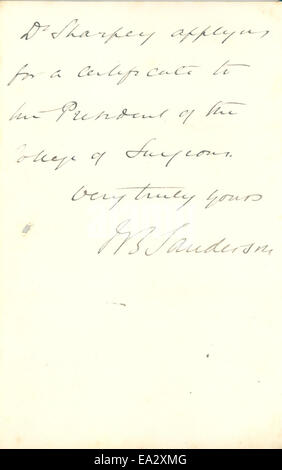 Dr Sharpey applying
for a certificate to
the President of the
College of Surgeons.
Very truly yours
JB Sanderson
alamy stock photo
EA2XMG